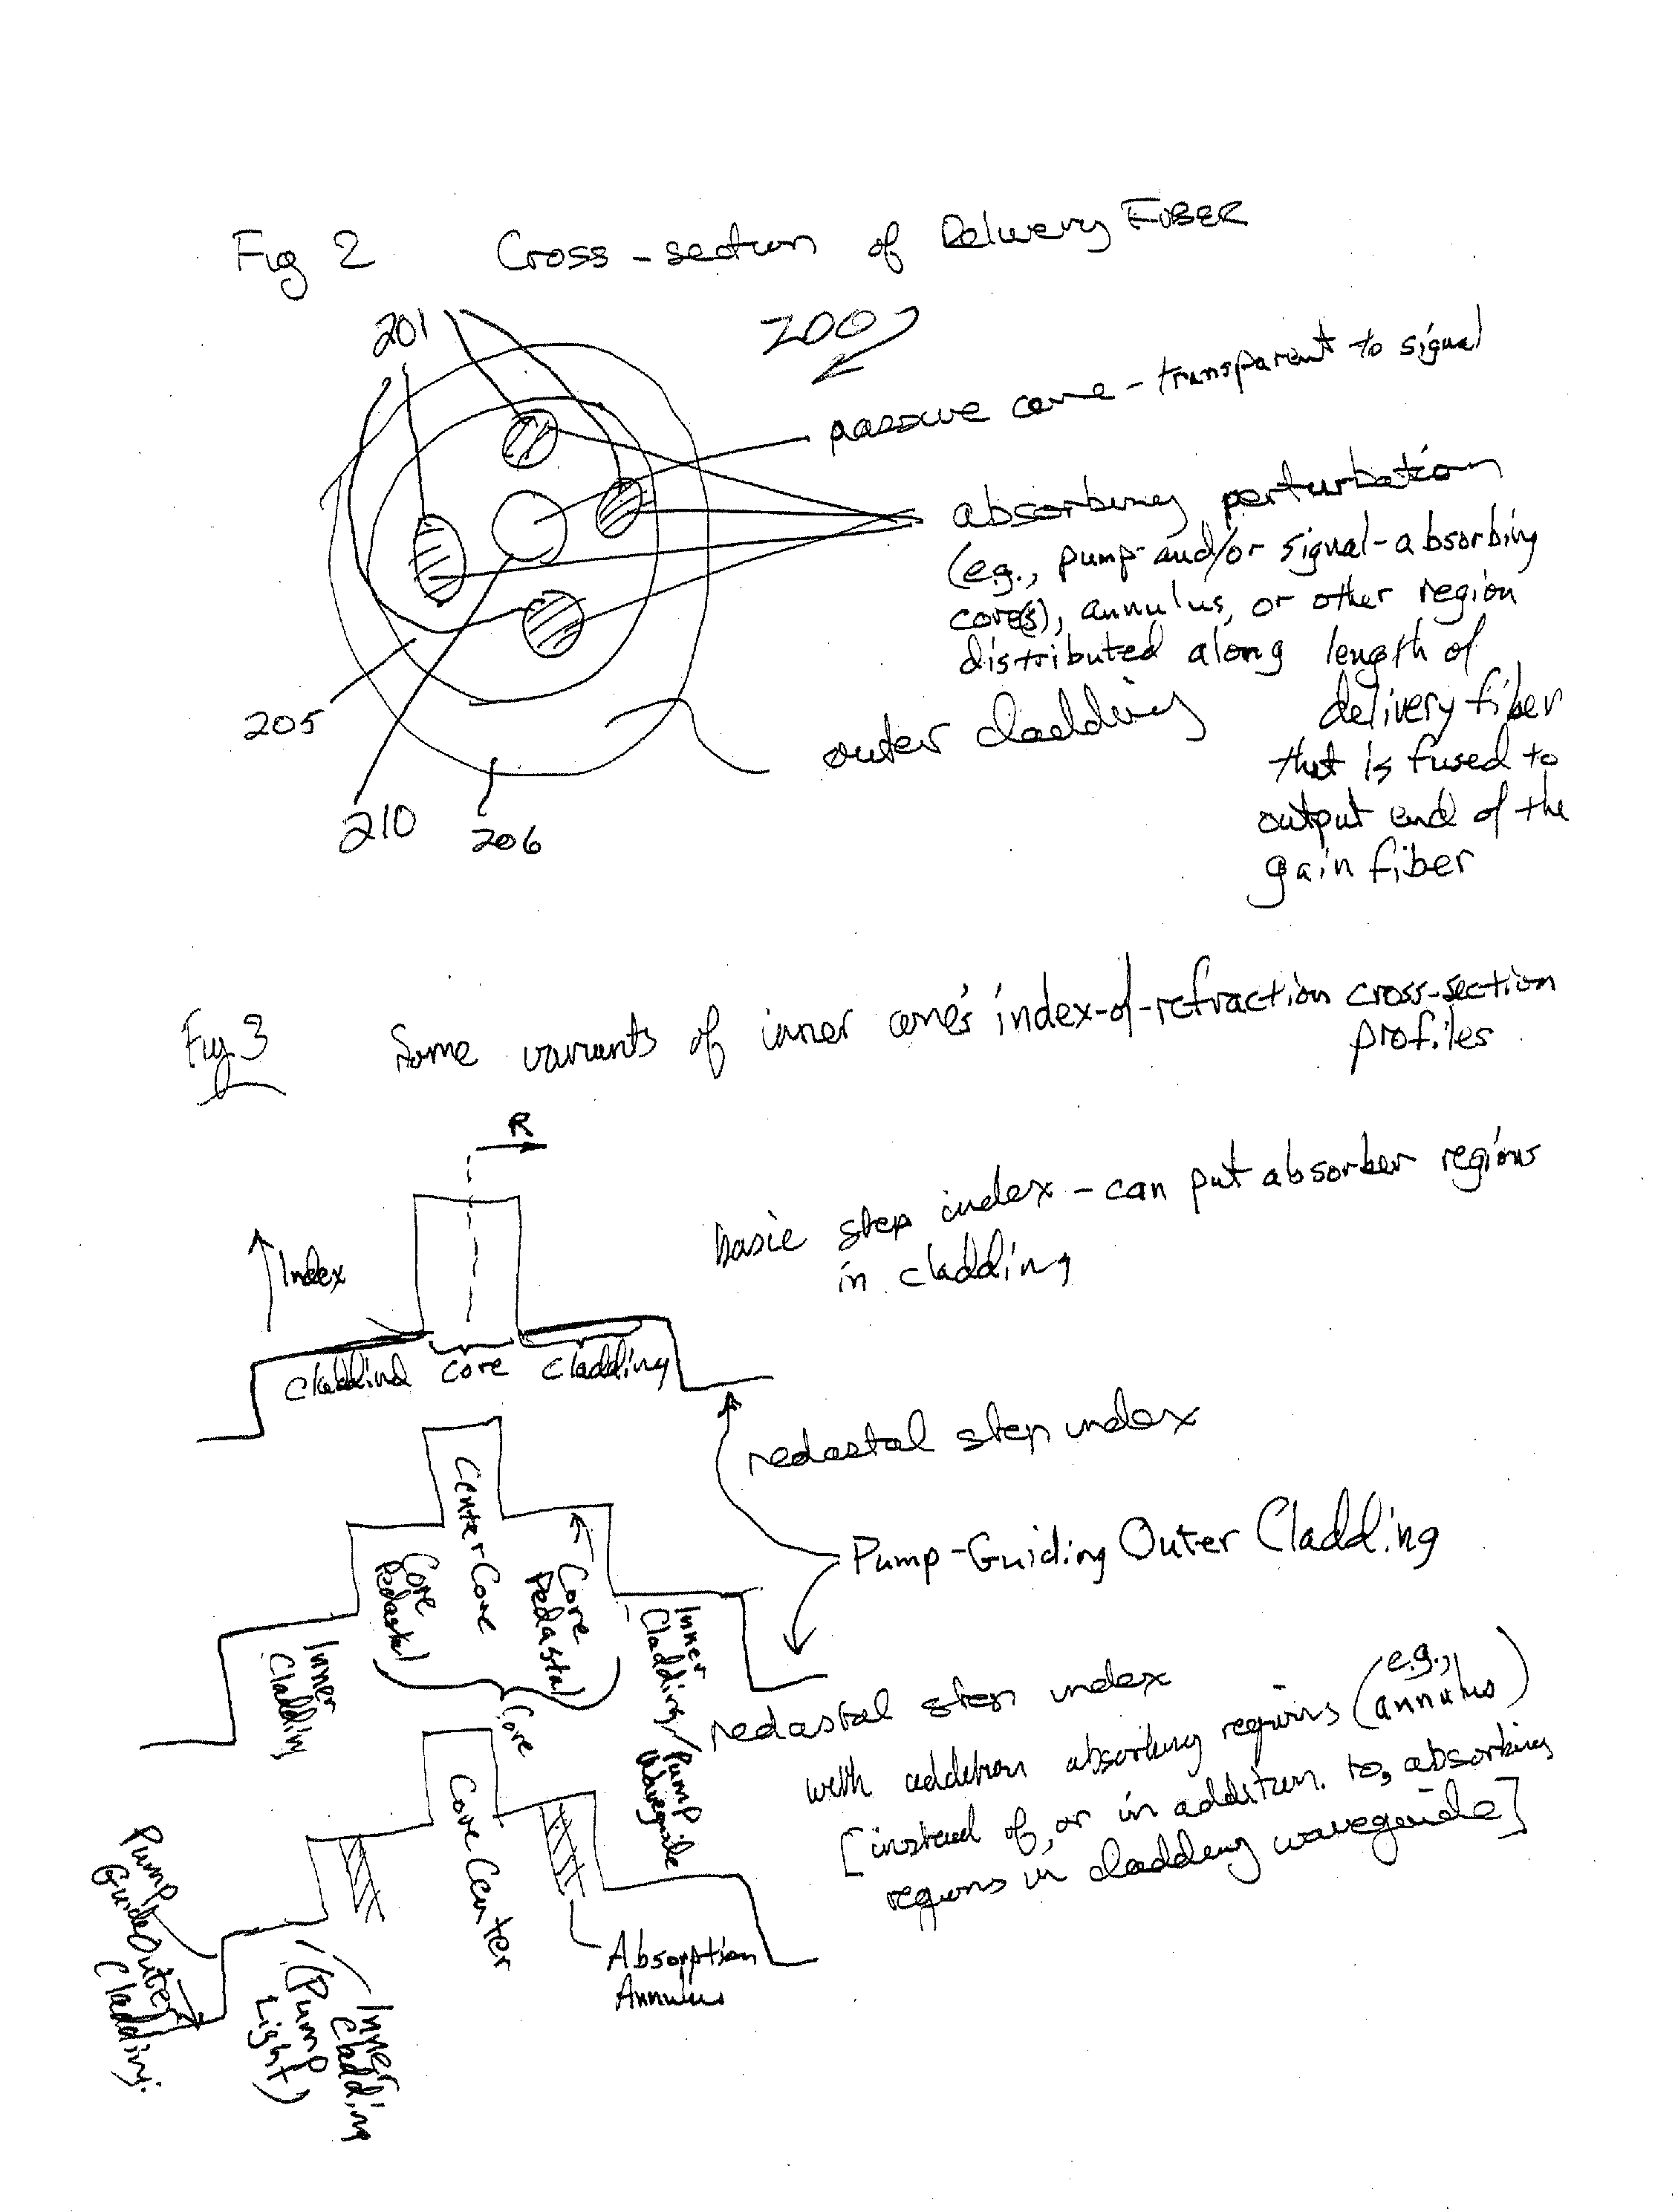 Fig 2 Cross-section of Delivery FIBER
201
200
passive core - transparent to signal
absorbing perturbation
(e.g., pump-and/or signal-absorbing
core(s), annulus, or other region
distributed along length of
delivery fiber
that is fused to
output end of the
gain fiber
outer cladding
205
210
206
Fig 3 Some variants of inner core's index-of-refraction cross-section
profiles
R
Index
basic step index - can put absorber regions
in cladding
Claddind core cladding
pedastal step index
Center Core
Core
Pedastal
Core
Pedastal
Pump-Guiding Outer Cladding
Inner
Cladding
Core
Inner
Cladding/
Pump
Waveguide
pedastal step index
with addition absorbing regions (e.g.,
annulus)
[instead of, or in addition to, absorbing
regions in cladding waveguide]
Core Center
Absorption
Annulus
Pump
Guide Outer
Cladding
Inner
Cladding
(Pump
Light)